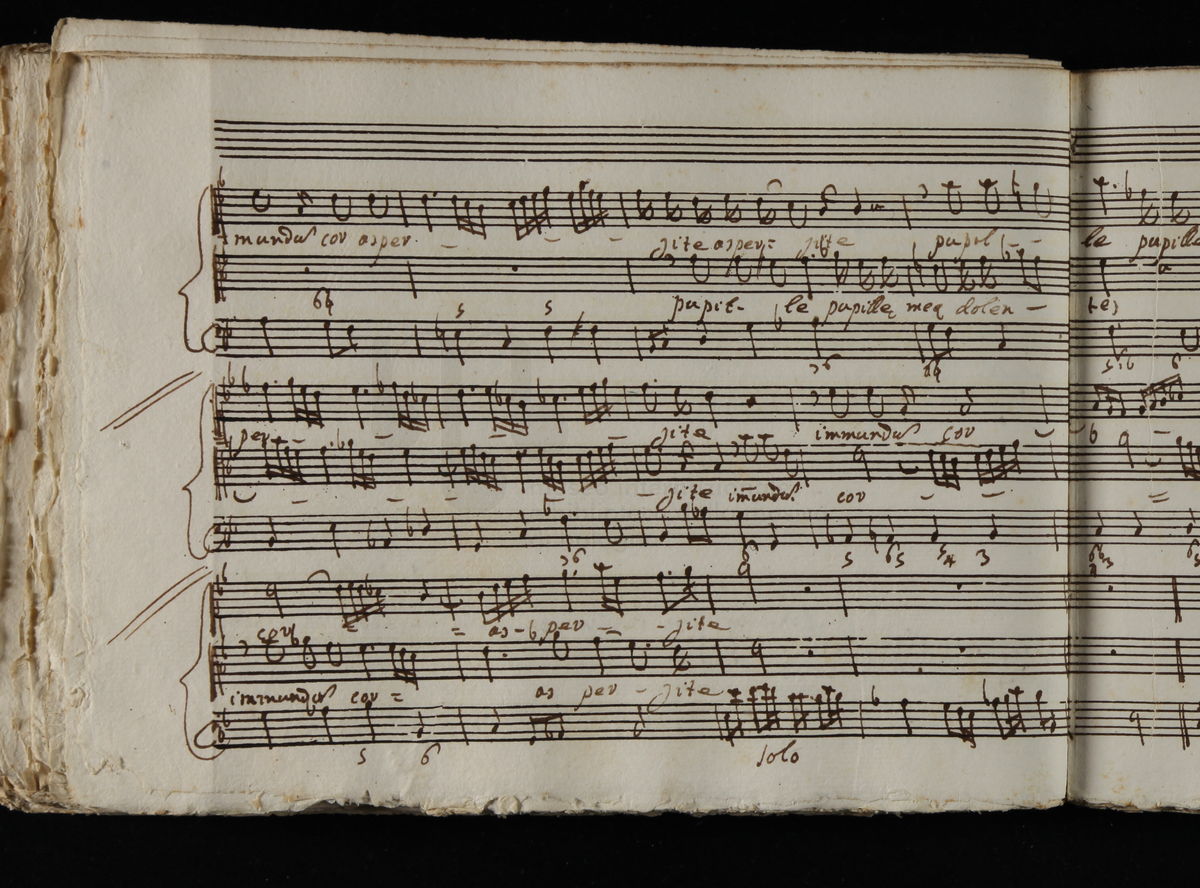 mundū cor asper - - - gite asper= gite pupil - - le pupille
pupil- le pupilleę meę dolen - tes
6♮ 5 5 ♭6 5 6 6
per - - - - gite immundū cor - -
- - - - gite im̄undū cor - - =
♭6 6 5 6 5 5 4 3
cor = = as - per - - gite
immundū cor = as per - gite
5 6 solo